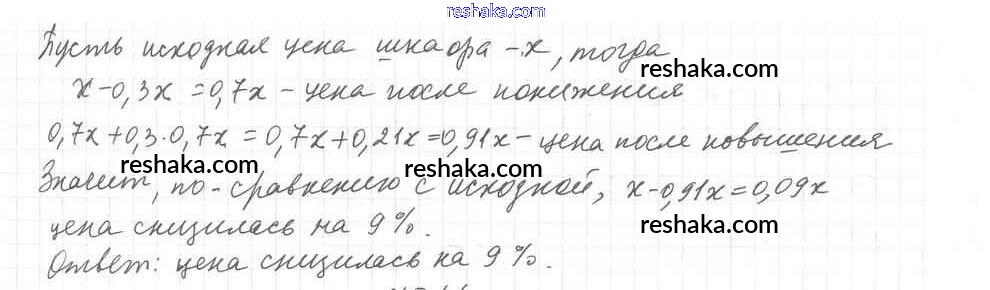 reshaka.com
Пусть исходная цена шкафа – x, тогда
reshaka.com
x – 0,3x = 0,7x – цена после понижения
0,7x + 0,3 · 0,7x = 0,7x + 0,21x = 0,91x – цена после повышения
reshaka.com
reshaka.com
Значит, по-сравнению с исходной, x – 0,91x = 0,09x
цена снизилась на 9 %.
reshaka.com
Ответ: цена снизилась на 9 %.